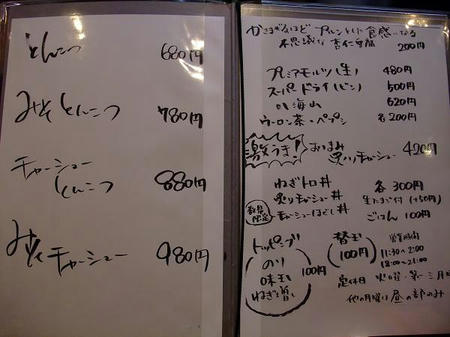 とんこつ 680円
みそとんこつ 780円
チャーシュー
とんこつ 880円
みそチャーシュー 980円
かきまぜるほど プルントした 食感になる
不思議な 杏仁豆腐
200円
プレミアモルツ(生) 480円
スーパードライ(ビン) 500円
八海山 620円
ウーロン茶・ペプシ 各200円
激うま! おつまみ
炙りチャーシュー 420円
ねぎトロ丼 各300円
炙りチャーシュー丼 生たまご付(+50円)
数量
限定
チャーシューほぐし丼 ごはん 100円
トッピング
のり
味玉
ねぎ増し
100円
替玉
100円
営業時間
11:30~2:00
18:00~21:00
定休日 火曜日・第一三月曜
他の月曜は昼の部のみ